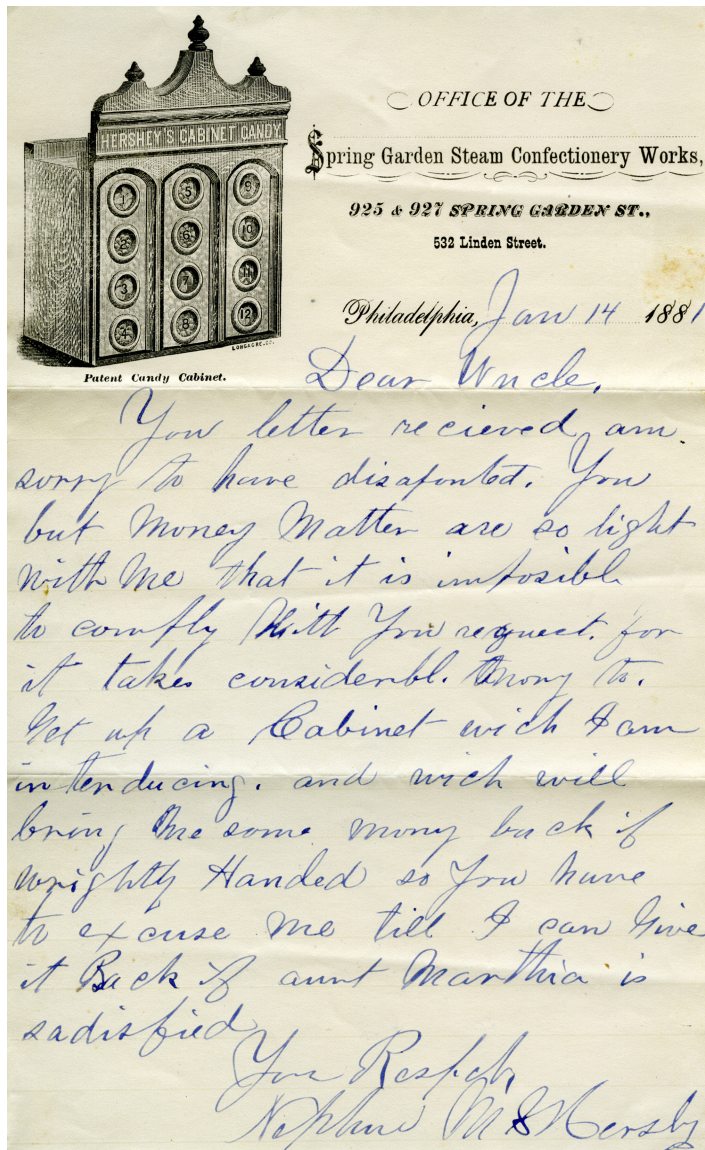 HERSHEY'S CABINET CANDY
1 5 9
2 6 10
3 7 11
4 8 12
LONGACRE.CO.
Patent Candy Cabinet.
OFFICE OF THE
Spring Garden Steam Confectionery Works,
925 & 927 SPRING GARDEN ST.,
532 Linden Street.
Philadelphia, Jan 14 1881
Dear Uncle,
You letter recieved am
sorry to have disaponted. You
but Money Matter are so tight
with Me that it is imposible
to comply With You request. for
it takes considerbl. Mony to.
Get up a Cabinet wich I am
intenducing. and wich will
bring Me some mony back if
wrightly Handed so You have
to excuse Me till I can Give
it Back if aunt Marthia is
sadisfied
You Respect,
Nephue M S Hersby